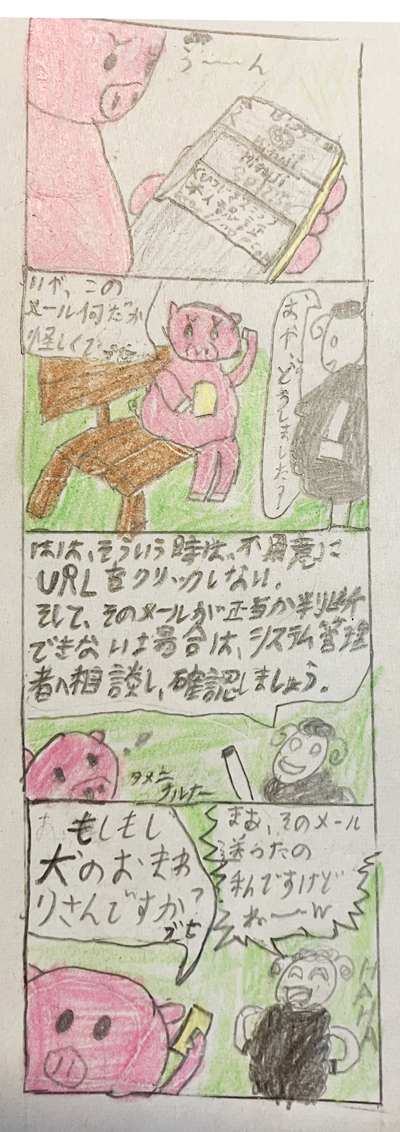 う〜〜ん
いや、この
メール何だか
怪しくて
おや、どうしました?
はは、そういう時は、不用意に
URLをクリックしない。
そして、そのメールが正当か判断
できない場合は、システム管理
者へ相談し、確認しましょう。
タメニ
ナルナー
あ、もしもし
犬のおまわ
りさんですか?
まあ、そのメール
送ったの
私んですけど
ね〜〜w
HAHA